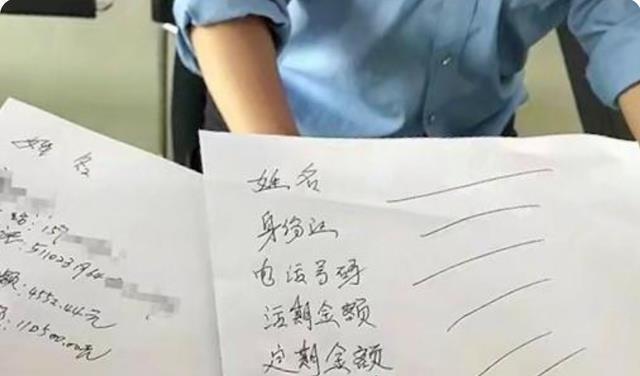 姓名
:157
:51023196
额:4552.44元
:110500.00元
姓名
身份证
电话号码
活期金额
定期金额